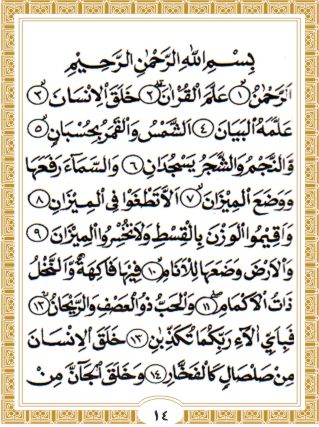 بِسْمِ اللهِ الرَّحْمٰنِ الرَّحِيْمِ
اَلرَّحْمٰنُ ﴿١﴾ عَلَّمَ الْقُرْاٰنَ ﴿٢﴾ خَلَقَ الْاِنْسَانَ ﴿٣﴾
عَلَّمَهُ الْبَيَانَ ﴿٤﴾ اَلشَّمْسُ وَالْقَمَرُ بِحُسْبَانٍ ﴿٥﴾
وَالنَّجْمُ وَالشَّجَرُ يَسْجُدَانِ ﴿٦﴾ وَالسَّمَاءَ رَفَعَهَا
وَوَضَعَ الْمِيْزَانَ ﴿٧﴾ اَلَّا تَطْغَوْا فِى الْمِيْزَانِ ﴿٨﴾
وَاَقِيْمُوا الْوَزْنَ بِالْقِسْطِ وَلَا تُخْسِرُوا الْمِيْزَانَ ﴿٩﴾
وَالْاَرْضَ وَضَعَهَا لِلْاَنَامِ ﴿١٠﴾ فِيْهَا فَاكِهَةٌ وَّالنَّخْلُ
ذَاتُ الْاَكْمَامِ ﴿١١﴾ وَالْحَبُّ ذُو الْعَصْفِ وَالرَّيْحَانُ ﴿١٢﴾
فَبِاَيِّ اٰلَاءِ رَبِّكُمَا تُكَذِّبٰنِ ﴿١٣﴾ خَلَقَ الْاِنْسَانَ
مِنْ صَلْصَالٍ كَالْفَخَّارِ ﴿١٤﴾ وَخَلَقَ الْجَآنَّ مِنْ
١٤